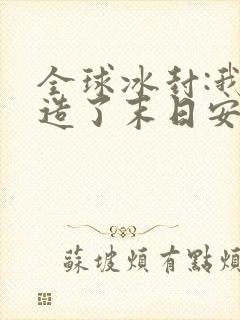 全球冰封:我
造了末日安
蘇坡煩有點煩